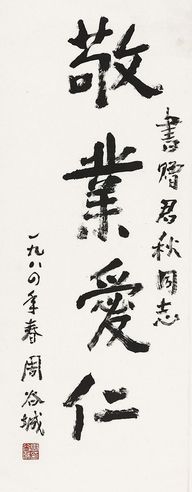 書贈君秋同志
敬業愛仁
一九八四年春 周谷城